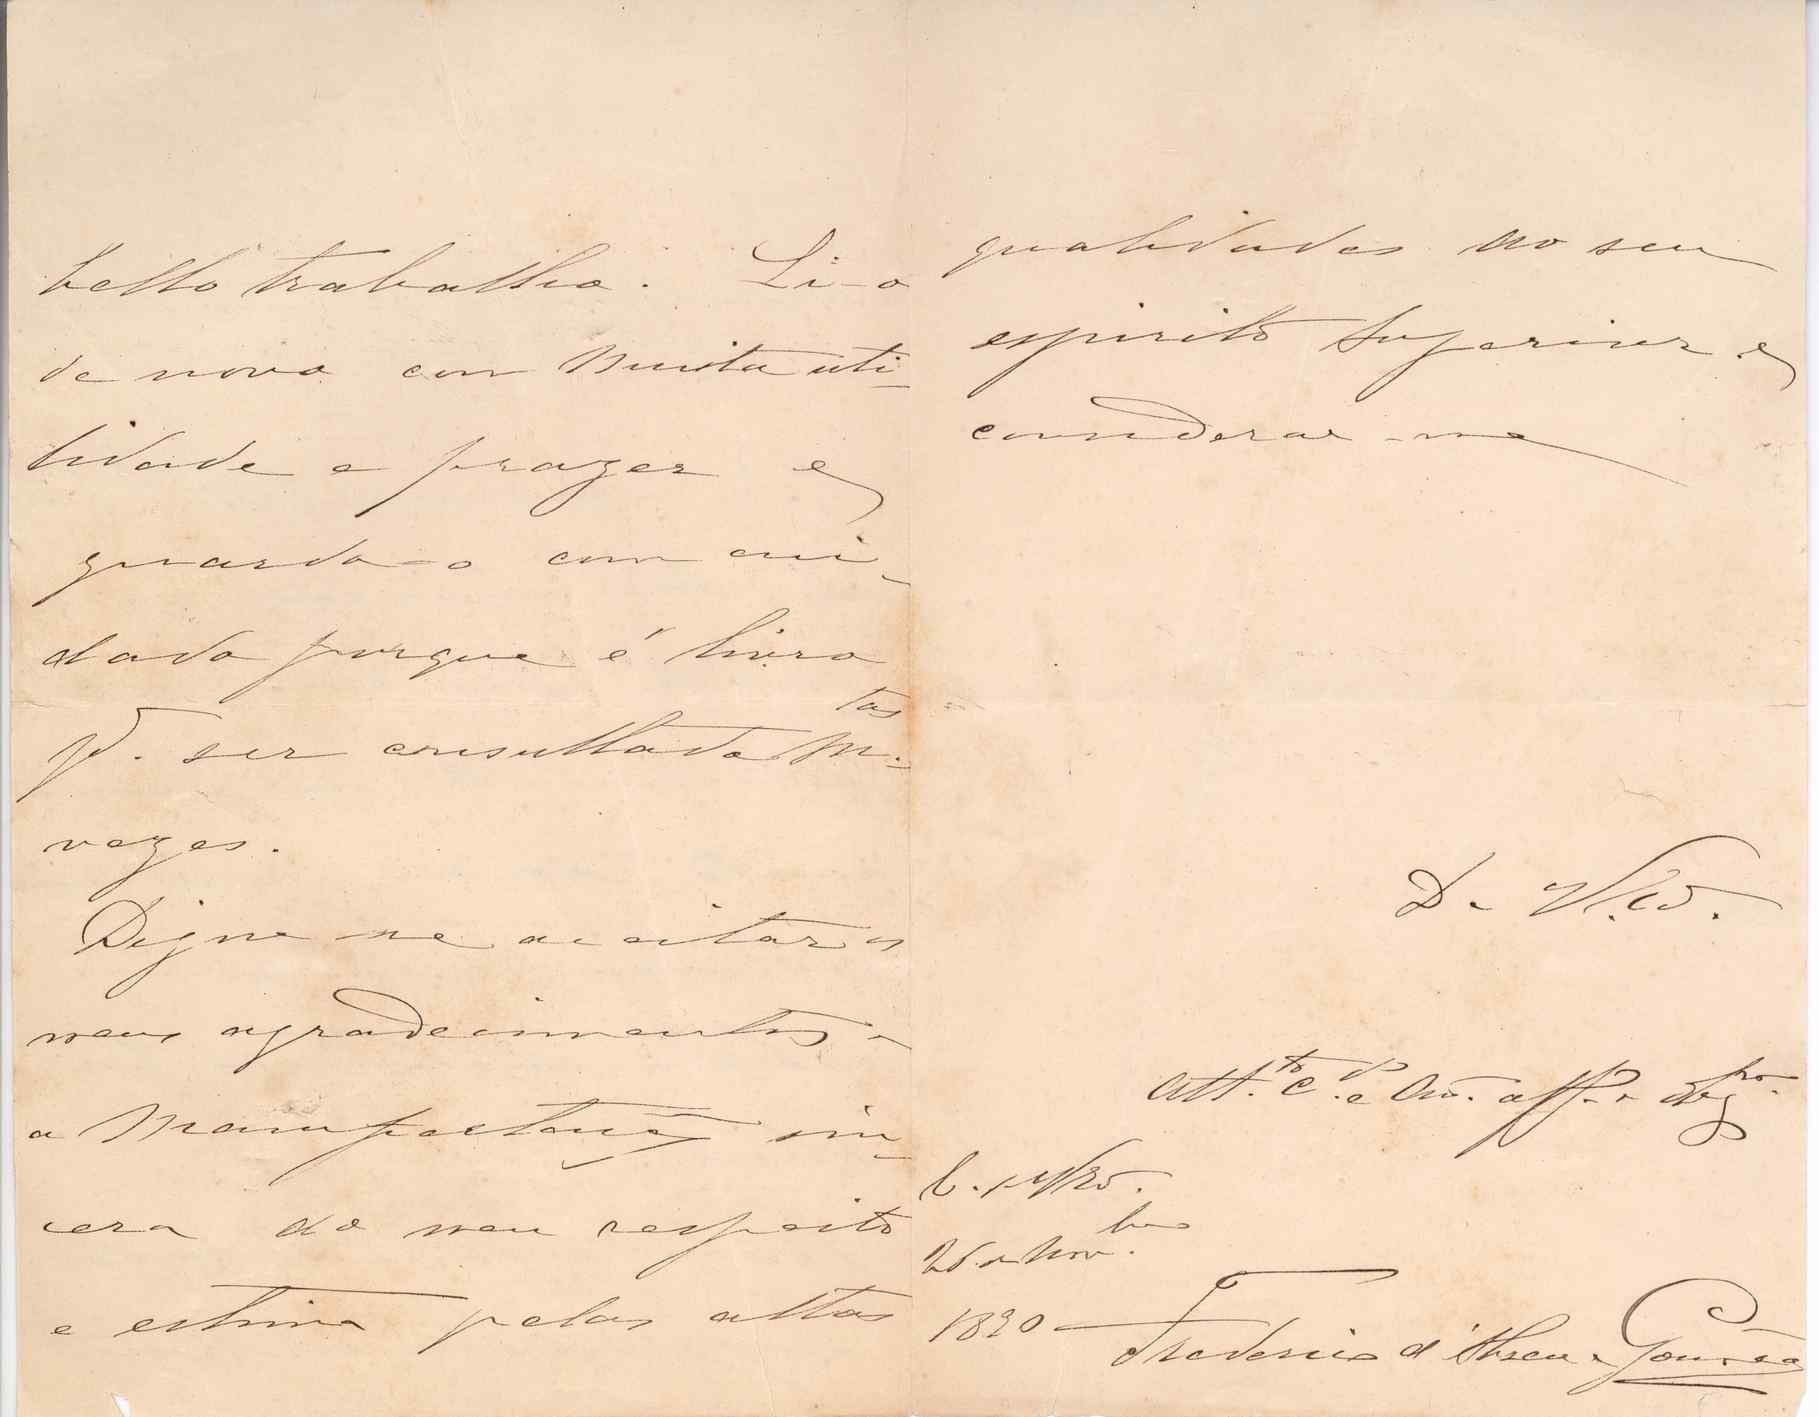 bello trabalho. Li-o
de novo com muita uti-
lidade e prazer e
guardo-o com cui-
dado porque é livro
pª. ser consultado m.tas
vezes.
Digne-se acceitar os
meus agradecimentos e
a manifestação sin-
cera do meu respeito
e estima pelas altas
qualidades do seu
espirito superior e
considerar-me
De V. Exª.
Att.to C.do e Am.º aff.º e obg.mo
26 de Nov.bro
1890
Frederico d'Abreu e Gouvêa